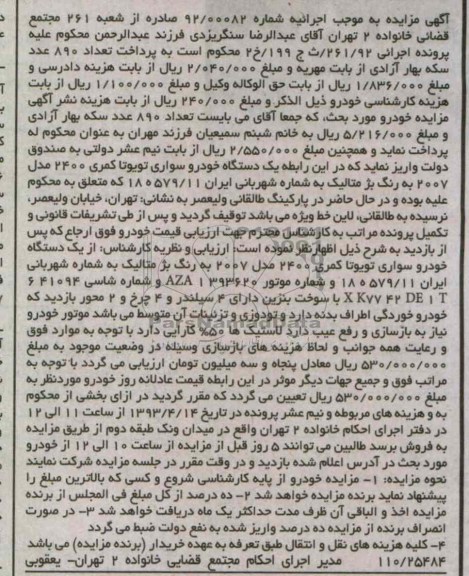 آگهی مزایده به موجب اجرائیه شماره ۹۲/۰۰۰۸۲ صادره از شعبه ۲۶۱ مجتمع
قضائی خانواده ۲ تهران آقای عبدالرضا سنگریزدی فرزند عبدالرحمن محکوم علیه
پرونده اجرائی ۲۶۱/۹۲/ث ج ۱۹۹/خ۲ محکوم است به پرداخت تعداد ۸۹۰ عدد
سکه بهار آزادی از بابت مهریه و مبلغ ۲/۰۴۰/۰۰۰ ریال از بابت هزینه دادرسی و
۱/۸۳۶/۰۰۰ ریال از بابت حق الوکاله وکیل و مبلغ ۱/۱۰۰/۰۰۰ ریال از بابت
هزینه کارشناسی خودرو ذیل الذکر و مبلغ ۲۴۰/۰۰۰ ریال از بابت هزینه نشر آگهی
مزایده خودرو مورد بحث، که جمعا آقای می بایست تعداد ۸۹۰ عدد سکه بهار آزادی
و مبلغ ۵/۲۱۶/۰۰۰ ریال به خانم شبنم سمیعیان فرزند مهران به عنوان محکوم له
پرداخت نماید و همچنین مبلغ ۲/۵۵۰/۰۰۰ ریال از بابت نیم عشر دولتی به صندوق
دولت واریز نماید که در این رابطه یک دستگاه خودرو سواری تویوتا کمری ۲۴۰۰ مدل
۲۰۰۷ به رنگ بژ متالیک به شماره شهربانی ایران ۱۱/۵۷۹ ه ۱۸ که متعلق به محکوم
علیه بوده و در حال حاضر در پارکینگ طالقانی ولیعصر به نشانی: تهران، خیابان ولیعصر،
نرسیده به طالقانی، لاین خط ویژه می باشد توقیف گردید و پس از طی تشریفات قانونی و
تکمیل پرونده مراتب به کارشناس محترم جهت ارزیابی قیمت خودرو فوق ارجاع که پس
از بازدید به شرح ذیل اظهار نظر نموده است: ارزیابی و نظریه کارشناس: از یک دستگاه
خودرو سواری تویوتا کمری ۲۴۰۰ مدل ۲۰۰۷ به رنگ بژ متالیک به شماره شهربانی
ایران ۱۱/۵۷۹ ه ۱۸ و شماره موتور ۱۳۹۳۶۲۰ AZA و شماره شاسی ۴۱۰۹۴ ۶
X K۷۷ ۴۲ DE ۱ T با سوخت بنزین دارای ۴ سیلندر و ۴ چرخ و ۲ محور بازدید که
خودرو خوردگی اطراف بدنه دارد و تودوزی و تزئینات آن متوسط می باشد موتور خودرو
نیاز به بازسازی و رفع عیب دارد لاستیک ها ۶۵٪ کارایی دارد با توجه به موارد فوق
و رعایت همه جوانب و لحاظ هزینه های بازسازی وسیله در وضعیت موجود به مبلغ
۵۳۰/۰۰۰/۰۰۰ ریال معادل پنجاه و سه میلیون تومان ارزیابی می گردد با توجه به
مراتب فوق و جمیع جهات دیگر موثر در این رابطه قیمت عادلانه روز خودرو موردنظر به
مبلغ ۵۳۰/۰۰۰/۰۰۰ ریال تعیین می گردد که مقرر گردید در ازای بخشی از محکوم
به و هزینه های مربوطه و نیم عشر پرونده در تاریخ ۱۳۹۳/۴/۱۴ از ساعت ۱۱ الی ۱۲
در دفتر اجرای احکام خانواده ۲ تهران واقع در میدان ونک طبقه دوم از طریق مزایده
به فروش برسد طالبین می توانند ۵ روز قبل از مزایده از ساعت ۱۰ الی ۱۲ از خودرو
مورد بحث در آدرس اعلام شده بازدید و در وقت مقرر در جلسه مزایده شرکت نمایند
نحوه مزایده: ۱- مزایده خودرو از پایه کارشناسی شروع و کسی که بالاترین مبلغ را
پیشنهاد نماید برنده مزایده خواهد شد ۲- ده درصد از کل مبلغ فی المجلس از برنده
مزایده اخذ و الباقی آن ظرف مدت حداکثر یک ماه دریافت خواهد شد ۳- در صورت
انصراف برنده از مزایده ده درصد واریز شده به نفع دولت ضبط می گردد
۴- کلیه هزینه های نقل و انتقال طبق تعرفه به عهده خریدار (برنده مزایده) می باشد
۱۱۰/۲۵۴۸۴ مدیر اجرای احکام مجتمع قضایی خانواده ۲ تهران- یعقوبی